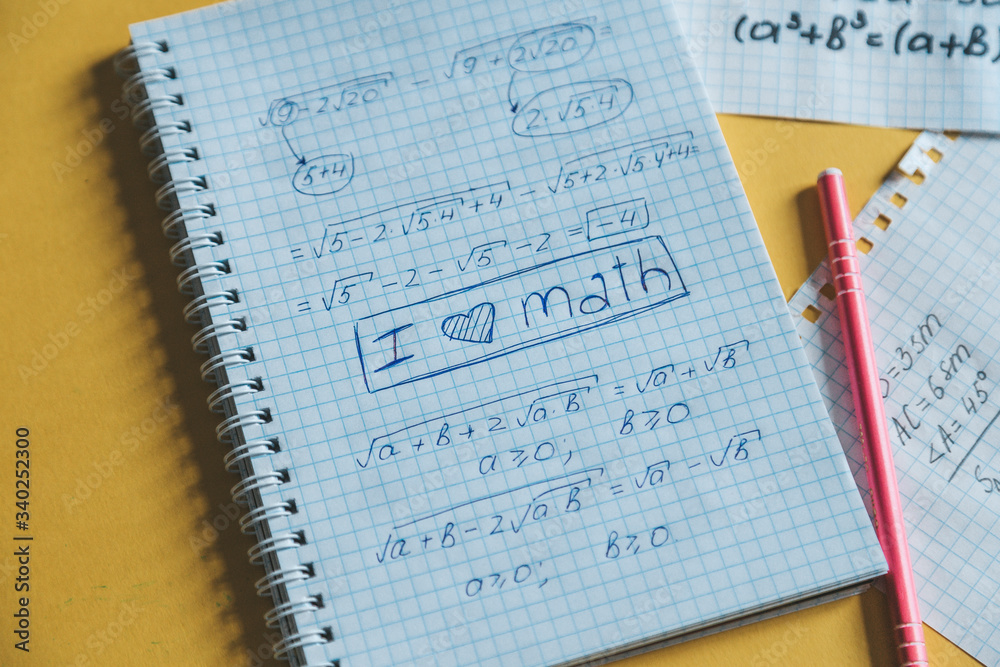 √(9-2√20) - √(9+2√20) =
5+4
2·√5·4
= √(5-2·√5·4+4) - √(5+2·√5·4+4) =
= √5 - 2 - √5 - 2 = -4
I ♥ math
√(a+B+2√a·B) = √a + √B
a⩾0; B⩾0
√(a+B-2√aB) = √a - √B
a⩾0; B⩾0
(a³+B³=(a+B)
=3sm
AC=6sm
∠A=45°
Adobe Stock | #340252300
Adobe Stock